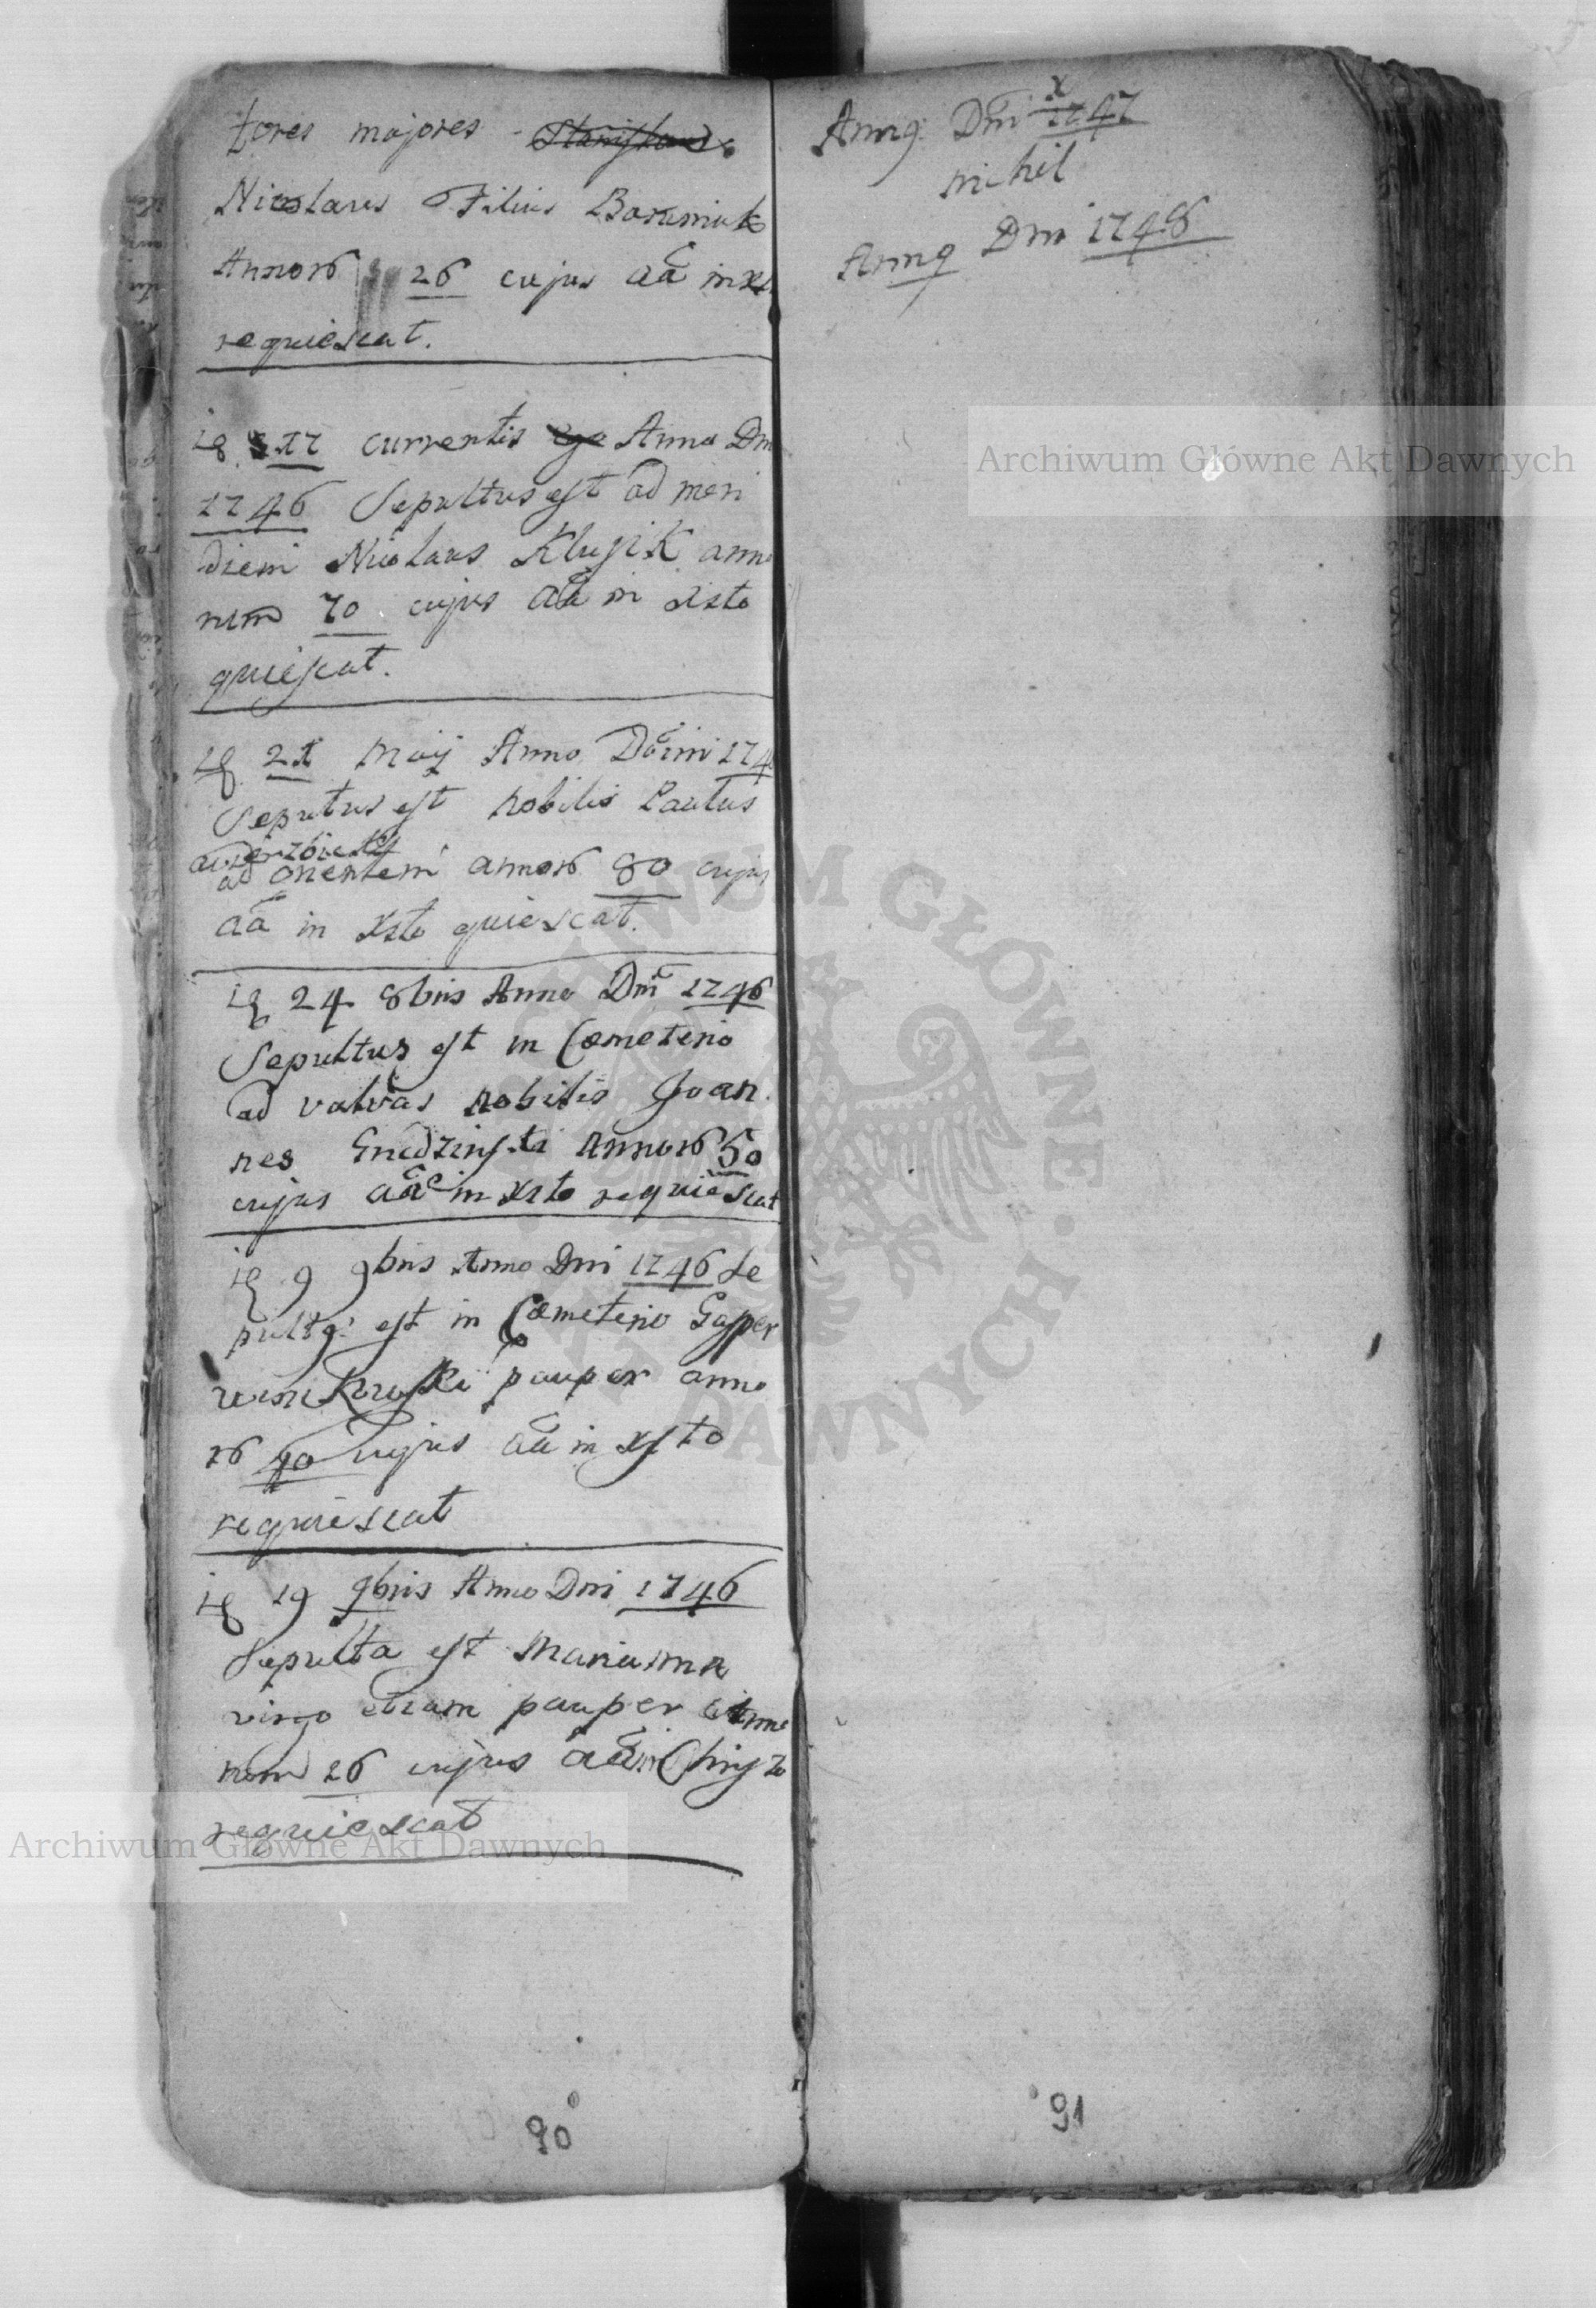 tores majores Stanislaus
Nicolaus Filius Baraniak
Annor 26 cujus aã in
requiescat.
17 currentis Anno Dni
1746 Sepultus est ad meri
diem Nicolaus Klusik anno
rum 70 cujus aã in Xsto
quiescat.
21 Maij Anno Domini 174
Seputus est nobilis Paulus
ad orientem annor 80 cujus
aã in Xsto quiescat.
24 8bris Anno Dni 1746
Sepultus est in Cœmeterio
ad valvas nobilis Joan
nes Annor 50
cujus aã in Xsto requiescat
9 9bris Anno Dni 1746 Se
pult9 est in Cœmeterio Gasper
pauper anno
cujus aã in Xsto
requiescat
19 9bris Anno Dni 1746
Sepulta est Marianna
virgo etiam pauper Anno
rum 26 cujus aã in Christo
requiescat
90
Ann9 Dni 1747
nihil
Ann9 Dni 1748
91
Archiwum Główne Akt Dawnych
Archiwum Główne Akt Dawnych
ARCHIWUM GŁÓWNE AKT DAWNYCH